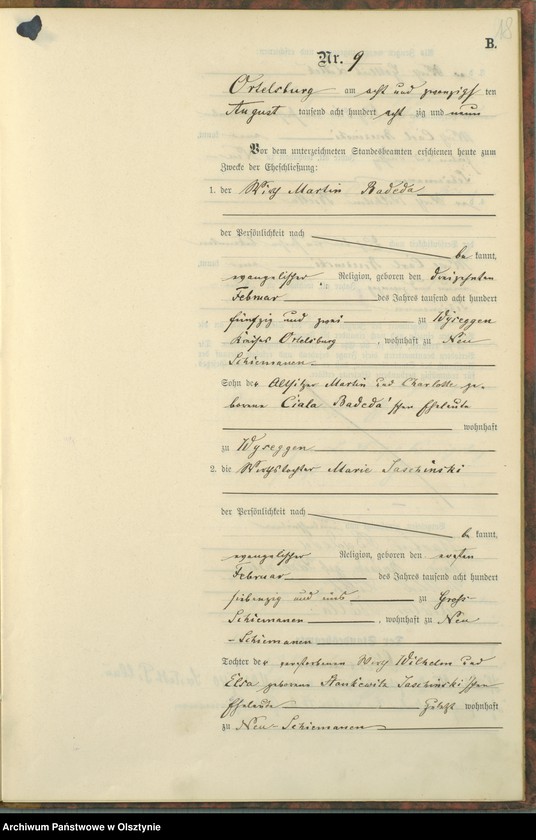 18
B.
Nr. 9
Ortelsburg am acht und zwanzigsten
August tausend acht hundert acht zig und neun
Vor dem unterzeichneten Standesbeamten erschienen heute zum
Zwecke der Eheschließung:
1. der Wirth Martin Badeda
der Persönlichkeit nach
be kannt,
evangelischer Religion, geboren den dreizehnten
Februar des Jahres tausend acht hundert
fünfzig und zwei zu Wyseggen
Kreises Ortelsburg, wohnhaft zu Neu
Schiemanen
Sohn der Altsitzer Martin und Charlotte ge-
borene Ciala Badeda'schen Eheleute
wohnhaft
zu Wyseggen
2. die Wirthstochter Marie Jaschinski
der Persönlichkeit nach
be kannt,
evangelischer Religion, geboren den ersten
Februar des Jahres tausend acht hundert
siebenzig und eins zu Groß-
Schiemanen, wohnhaft zu Neu
-Schiemanen
Tochter der verstorbenen Wirth Wilhelm und
Elsa geborene Jaschinski'schen
Eheleute zuletzt wohnhaft
zu Neu-Schiemanen
Archiwum Państwowe w Olsztynie